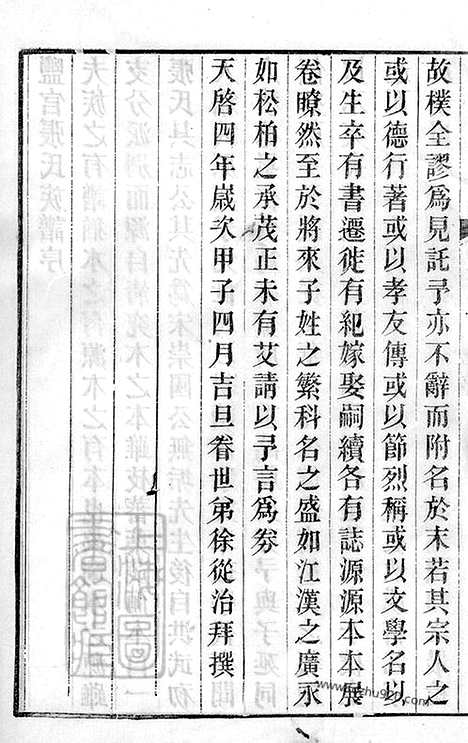 故樸全謬為見託予亦不辭而附名於末若其宗人之
或以德行著或以孝友傳或以節烈稱或以文學名以
及生卒有書遷徙有紀嫁娶嗣續各有誌源源本本展
卷瞭然至於將來子姓之繁科名之盛如江漢之廣永
如松柏之承茂正未有艾請以予言為券
天啓四年歲次甲子四月吉旦眷世弟徐從治拜撰